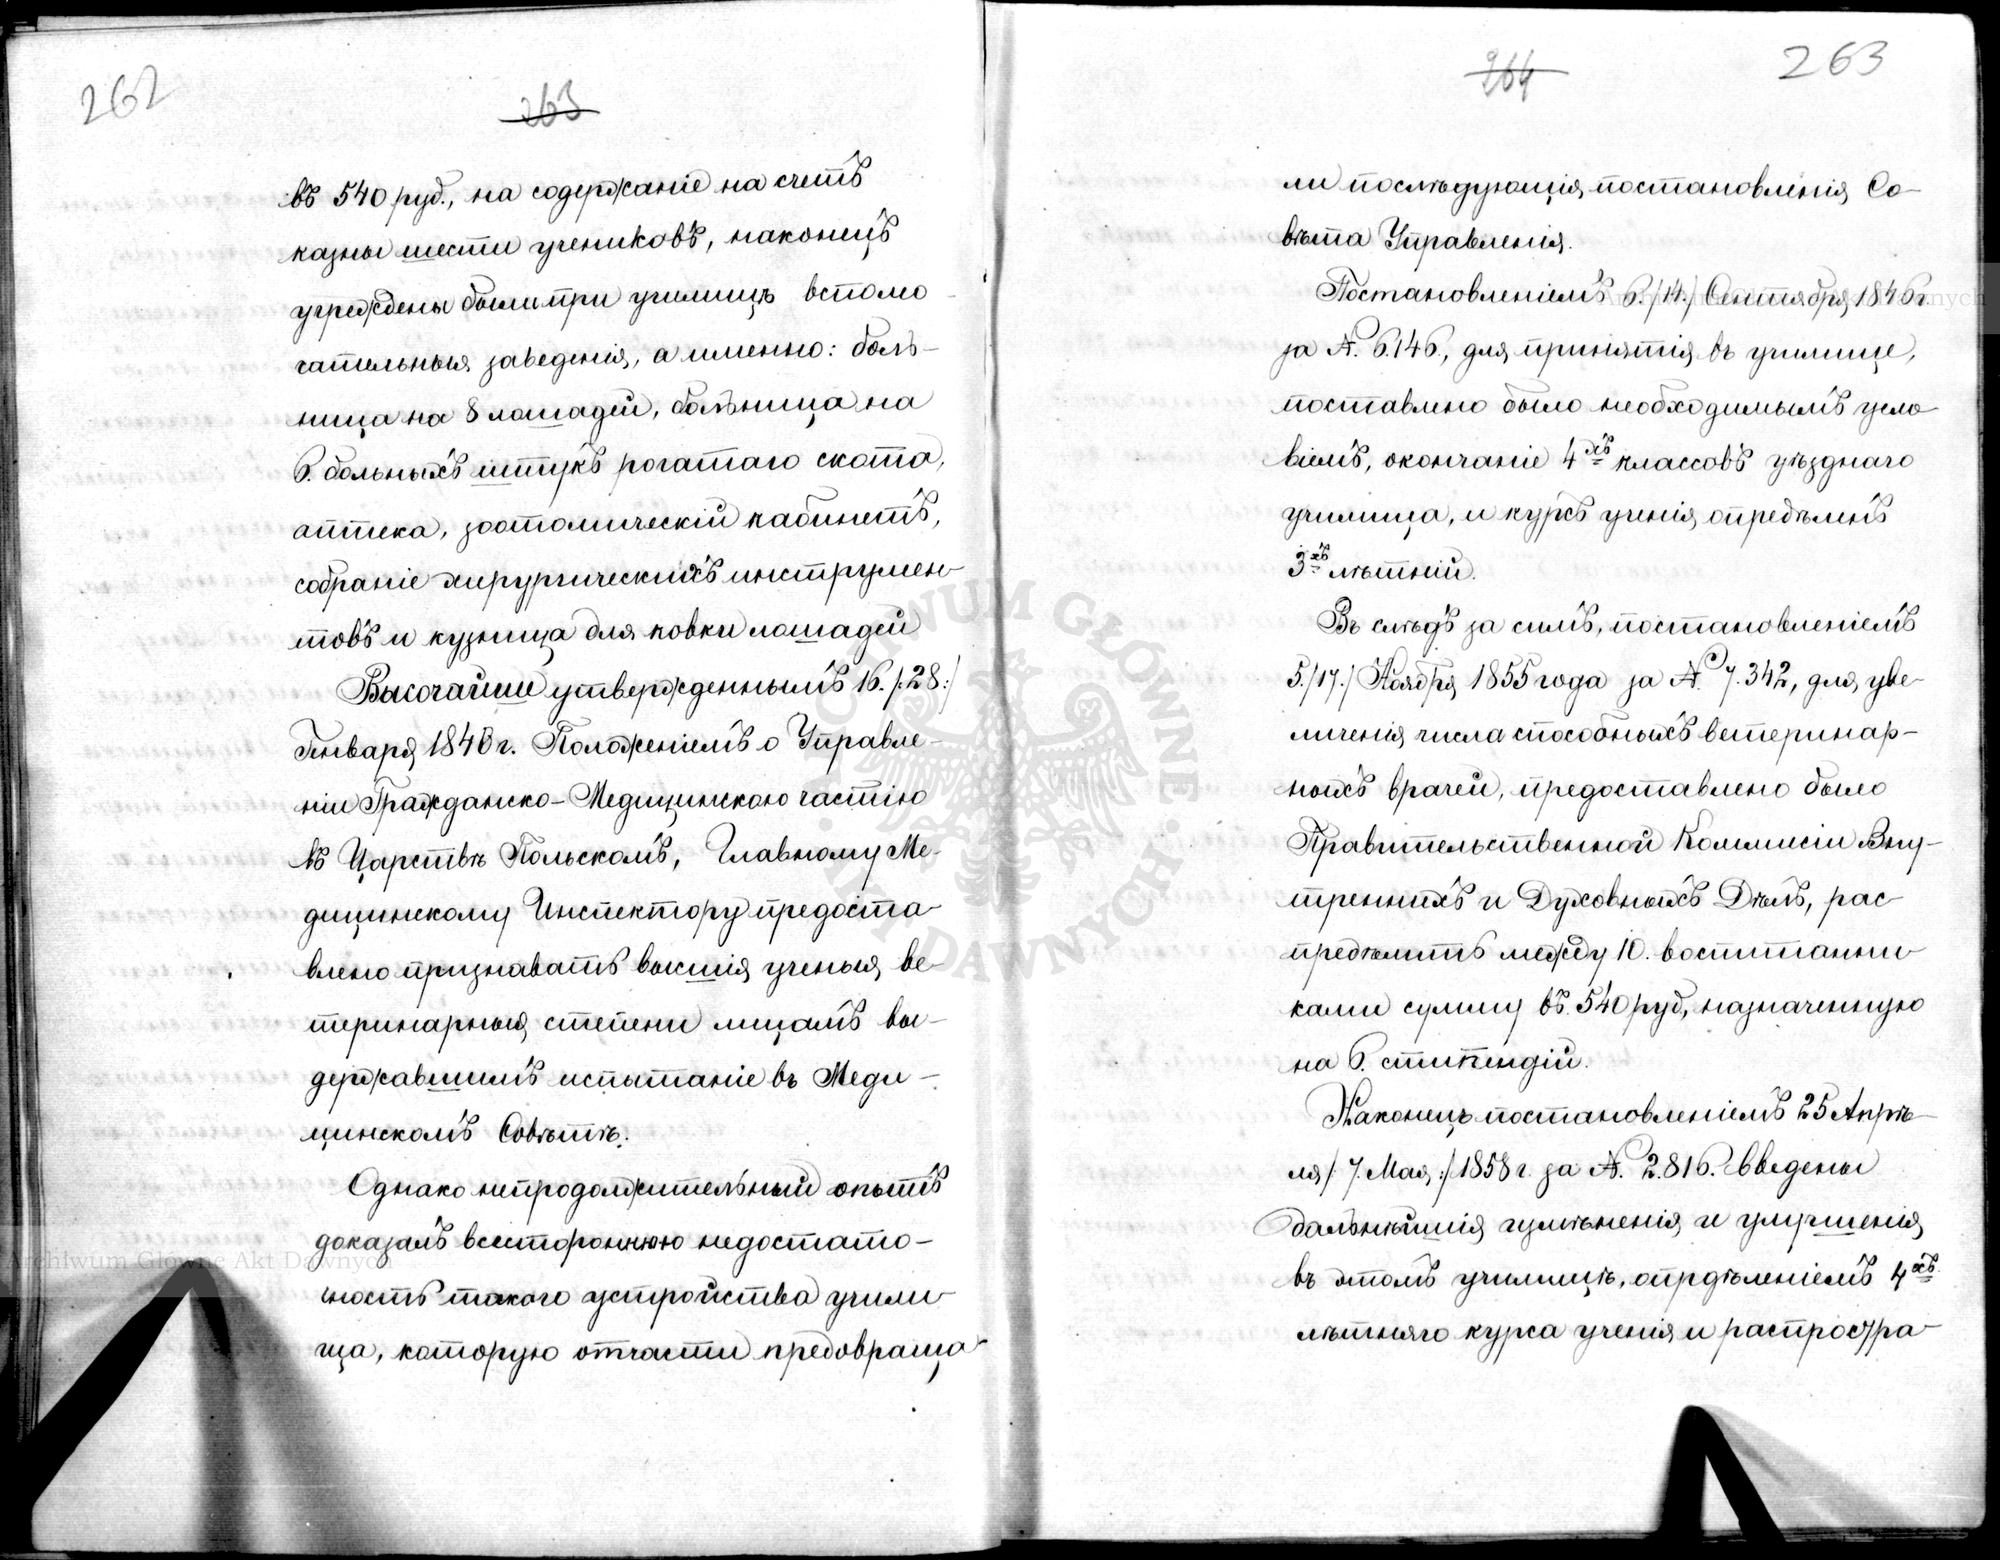 262
263
въ 540 руб., на содержаніе на счетъ
казны шести учениковъ, наконецъ
учреждены были при училищѣ вспомо-
гательныя заведенія, а именно: боль-
ница на 8 лошадей, больница на
6. больныхъ штукъ рогатаго скота,
аптека, зоотомическій кабинетъ,
собраніе хирургическихъ инструмен-
товъ и кузница для ковки лошадей
Высочайше утвержденнымъ 16./:28:/
Января 1846 г. Положеніемъ о Управле-
ніи Гражданско-Медицинскою частію
въ Царствѣ Польскомъ, Главному Ме-
дицинскому Инспектору предоста-
влено признавать высшія ученыя ве-
теринарныя степени лицамъ вы-
державшимъ испытаніе въ Меди-
цинскомъ Совѣтѣ.
Однако непродолжительный опытъ
доказалъ всестороннюю недостато-
чность такого устройства учили-
ща, которую отчасти предовраща-
264
263
ли послѣдующія постановленія Со-
вѣта Управленія.
Постановленіемъ 6./14./ Сентября 1846 г.
за №. 6.146., для принятія въ училище,
поставлено было необходимымъ усло-
віемъ, окончаніе 4хъ классовъ уѣзднаго
училища, и курсъ ученія опредѣленъ
3хъ лѣтній.
Въ слѣдъ за симъ, постановленіемъ
5./17./ Ноября 1855 года за №. 7.342, для уве-
личенія числа способныхъ ветеринар-
ныхъ врачей, предоставлено было
Правительственной Коммисіи Вну-
треннихъ и Духовныхъ Дѣлъ, рас-
предѣлить между 10. воспитанни-
ками сумму въ 540 руб, назначенную
на 6. стипендій.
Наконецъ постановленіемъ 25 Апрѣ-
ля /:7. Мая:/ 1858 г. за №. 2.816. введены
дальнѣйшія измѣненія и улучшенія
въ этомъ училищѣ, опрдѣленіемъ 4хъ
лѣтняго курса ученія и распростра-
ARCHIWUM GŁÓWNE
AKT DAWNYCH
Archiwum Główne Akt Dawnych
Archiwum Główne Akt Dawnych